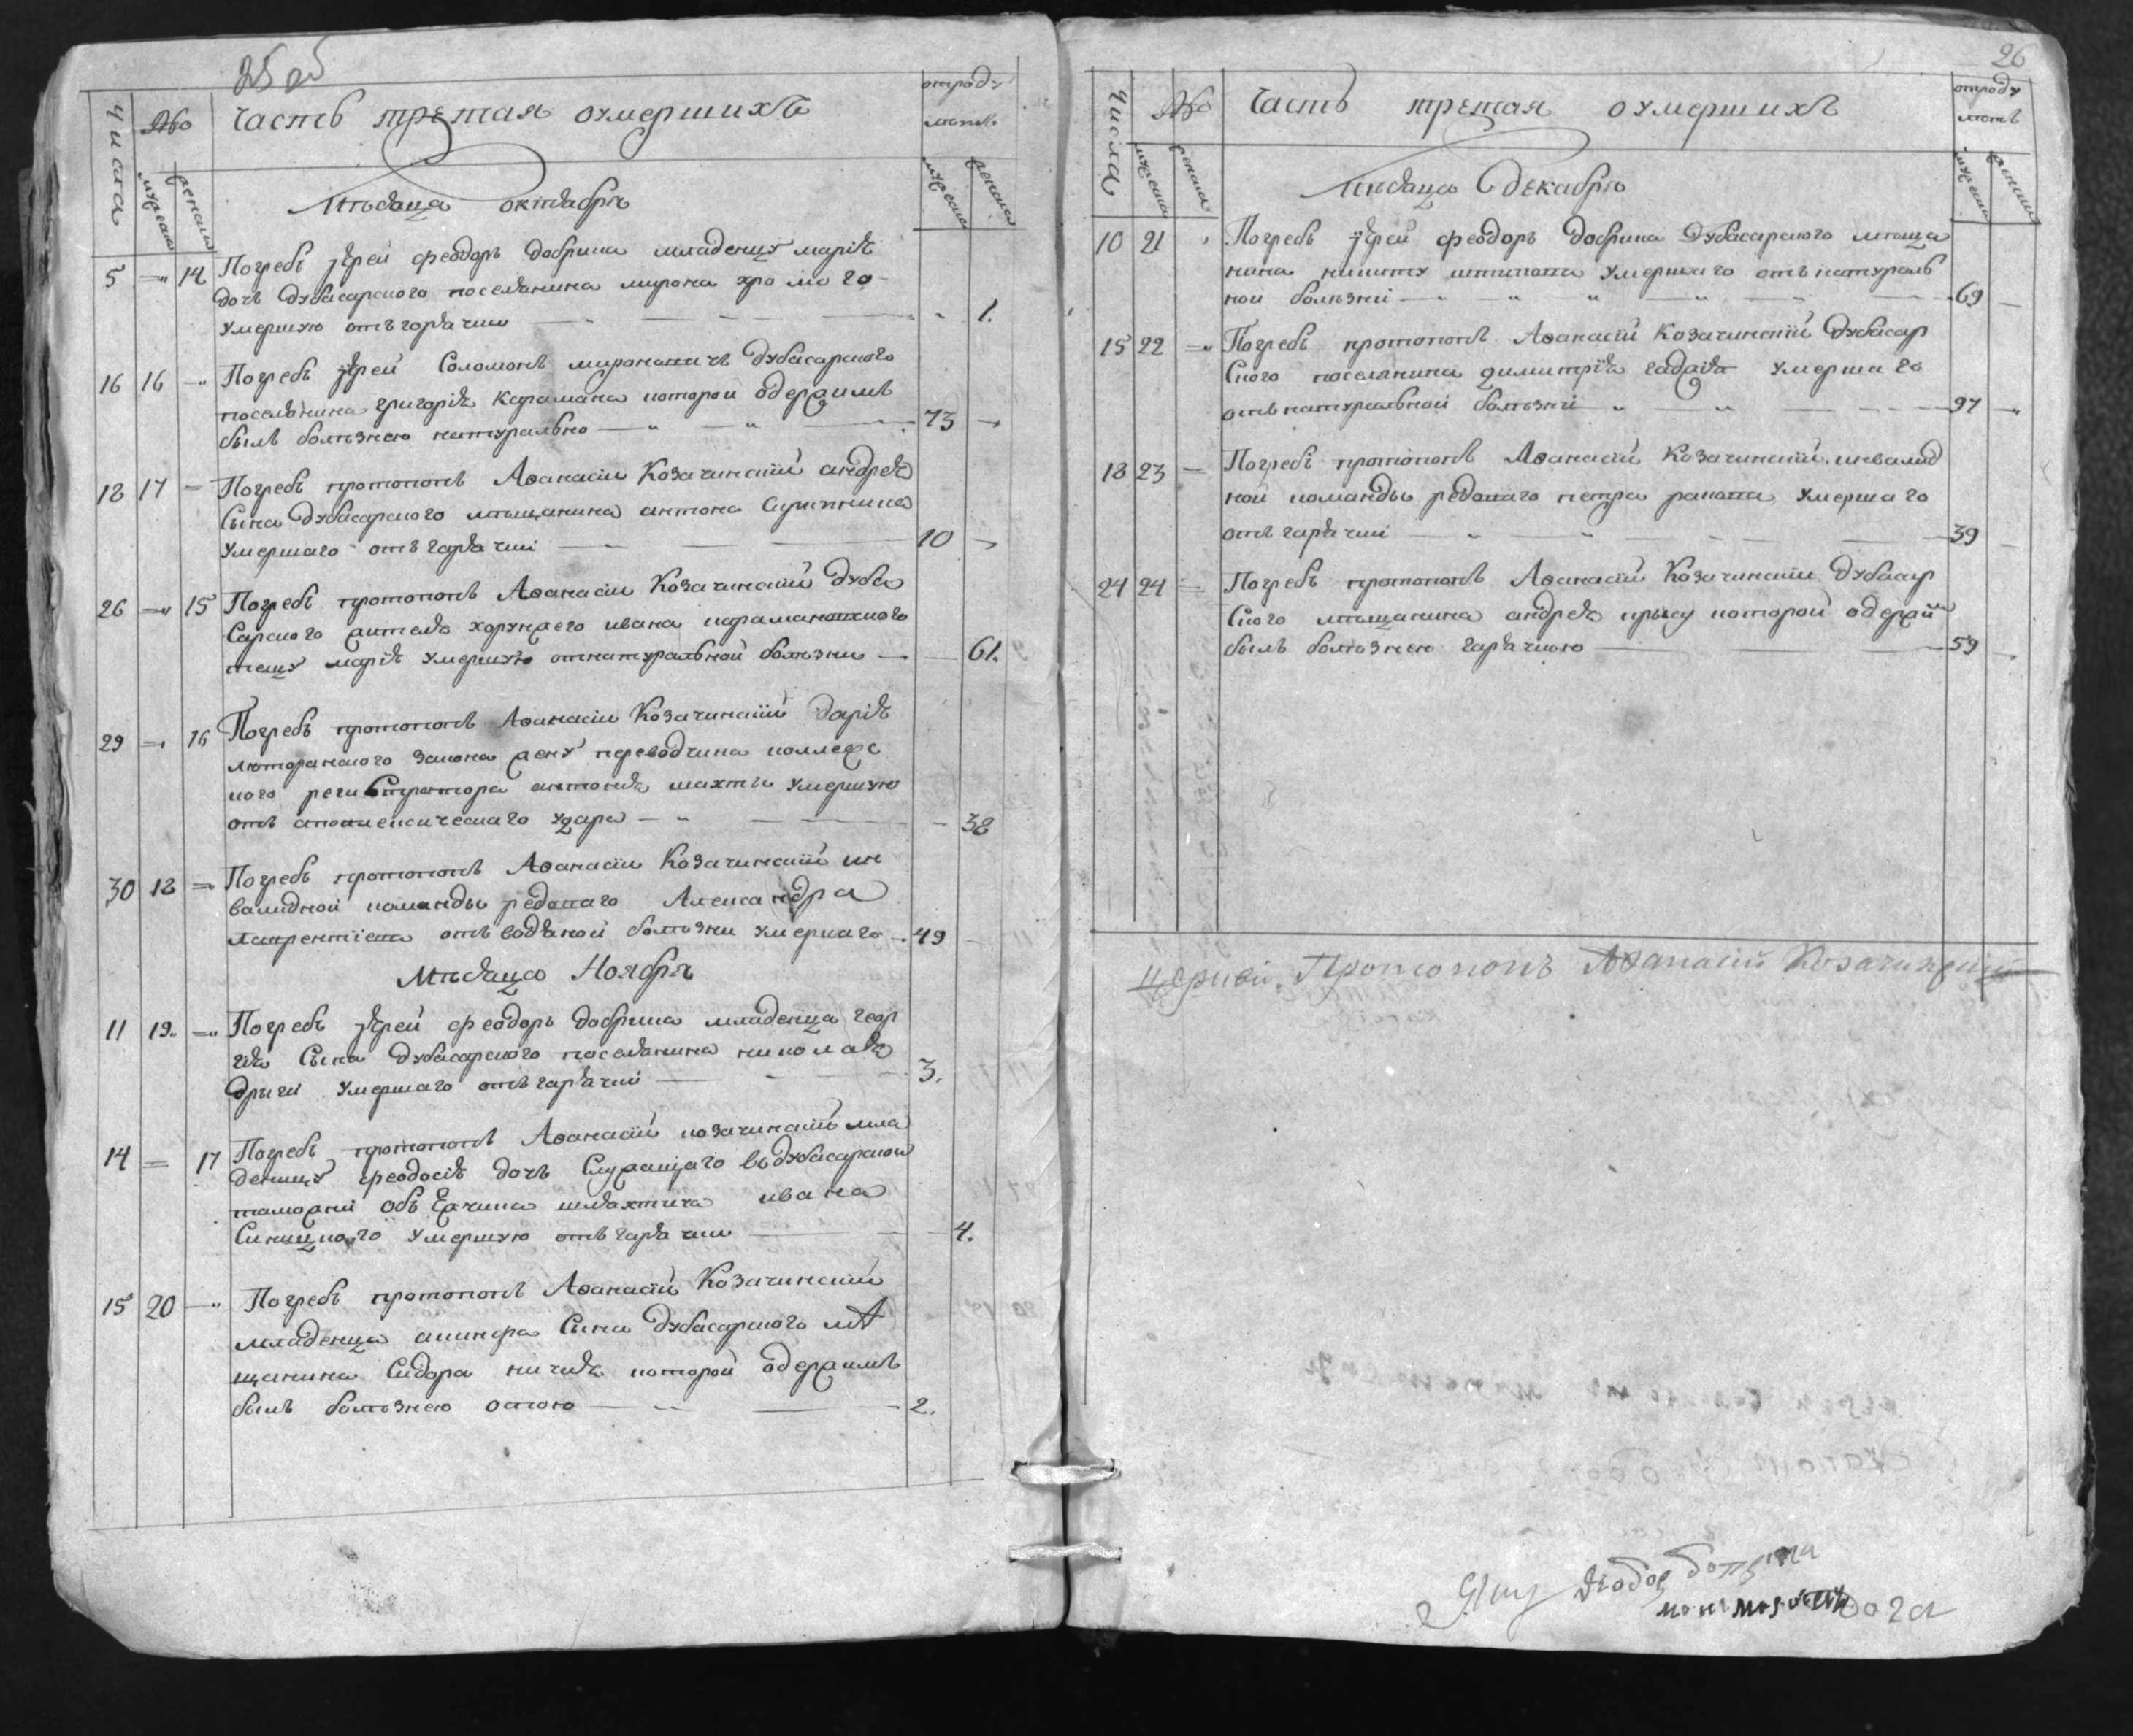 25 об
Числа № Часть третая оумершихъ отроду лѣтъ
мужеска женска мужеска женска
Мѣсяца октября
5 — 14 Погребъ іерей феодоръ добрина младенцу марію
дочъ дубасарского поселянина мирона хромого
умершую отъ гарячки — 1.
16 16 — Погребъ іерей Соломонъ миронаничъ дубасарского
поселянина григорія Карамана которой одержимъ
былъ болѣзнею натурально — 73 —
18 17 — Погребъ протопопъ Аѳанасіи Козачинскій андрея
Сына дубасарского мѣщанина антона
умершаго отъ гарячкі — 10 —
26 — 15 Погребъ протопопъ Аѳанасіи Козачинскій дуба
сарского жителя хорунжего ивана
тещу марію умершую отнатуральной болѣзни — 61.
29 — 16 Погребъ протопопъ Аѳанасіи Козачинскій дарію
люторанского закона жену переводчика коллежс
кого региБстратора антонія махты умершую
отъ апоплексическаго удара — 38
30 18 — Погребъ протопопъ Аѳанасіи Козачинскій ин
валидной команды редоваго Александра
лаврентіева отъ водяной болѣзни умершаго — 49
Мѣсяца Ноября
11 19. — Погребъ іерей феодоръ добрина младенца геор
гія Сына дубасарского поселянина николая
дрыги умершаго отъ гарячкі — 3.
14 — 17 Погребъ протопопъ Аѳанасій козачинскій мла
деницу феодосію дочъ Служащаго въ дубасарской
таможні объѣжчика шляхтича ивана
умершую отъ гарячки — 4.
15 20 — Погребъ протопопъ Аѳанасіи Козачинскій
младенца Сына дубасарского мѣ
щанина Сидора кичія которой одержимъ
былъ болѣзнею оспою — 2.
26
Числа № Часть третая оумершихъ отроду лѣтъ
мужеска женска мужеска женска
Мѣсяца декабря
10 21 Погребъ іерей феодоръ добрина дубасарского мѣща
нина никиту умершаго отъ натураль
ной болѣзні — 69 —
15 22 — Погребъ протопопъ Аѳанасій Козачинскій дубасар
Ского поселянина димитрія умершаго
отъ натуральной болѣзні — 97 —
18 23 — Погребъ протопопъ Аѳанасій Козачинскій инвалид
ной команды редоваго петра умершаго
отъ гарячкі — 39 —
24 24 — Погребъ протопопъ Аѳанасій Козачинскіи дубасар
Ского мѣщанина андрея которой одержим
былъ болѣзнею гарячкою — 59 —
Протопопъ Аѳанасій Козачинскій